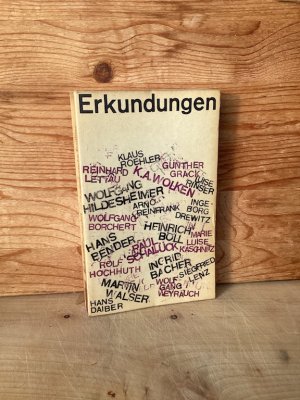 Erkundungen
KLAUS
ROEHLER
REINHARD
LETTAU
GUNTHER
GRACK
K.A. WOLKEN
LUISE
RINSER
WOLFGANG
HILDESHEIMER
ARNO
REINFRANK
INGE
BORG
DREWITZ
WOLFGANG
BORCHERT
HEINRICH
BÖLL
MARIE
LUISE
KASCHNITZ
HANS
BENDER
PAUL
SCHALLÜCK
ROLF
HOCHHUTH
INGRID
BACHER
SIEGFRIED
LENZ
MARTIN
WALSER
WOLF
GANG
WEYRAUCH
HANS
DAIBER